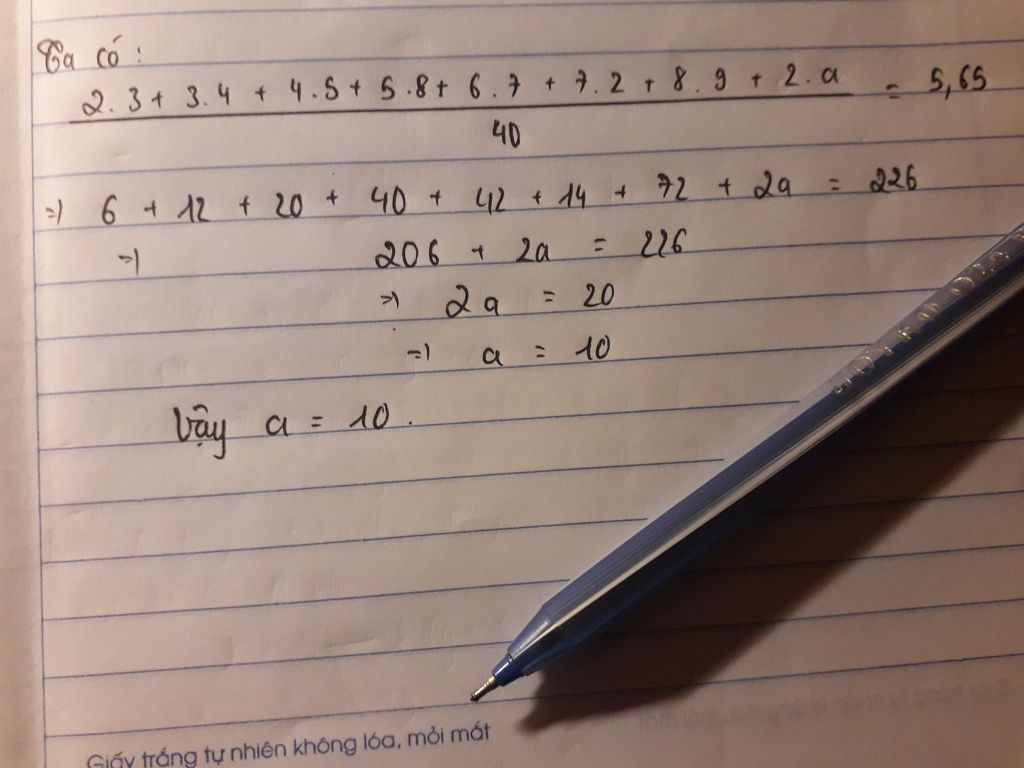 Ta có :
2.3 + 3.4 + 4.5 + 5.8 + 6.7 + 7.2 + 8.9 + 2.a = 5,65
40
=) 6 + 12 + 20 + 40 + 42 + 14 + 72 + 2a = 226
=) 206 + 2a = 226
=) 2a = 20
=) a = 10
Vậy a = 10.
Giấy trắng tự nhiên không lóa, mỏi mắt